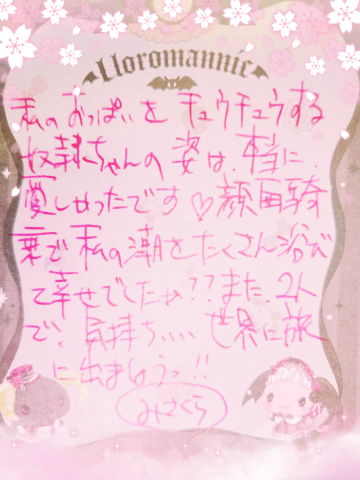 Lloromannic
私のおっぱいをチュウチュウする
奴隷ちゃんの姿は、本当に、
愛しかったです♡顔面騎
乗で私の潮をたくさん浴び
て幸せでしたか??また、2人
で、気持ちいい、世界に旅
に出ましょうっ!!
みさくら